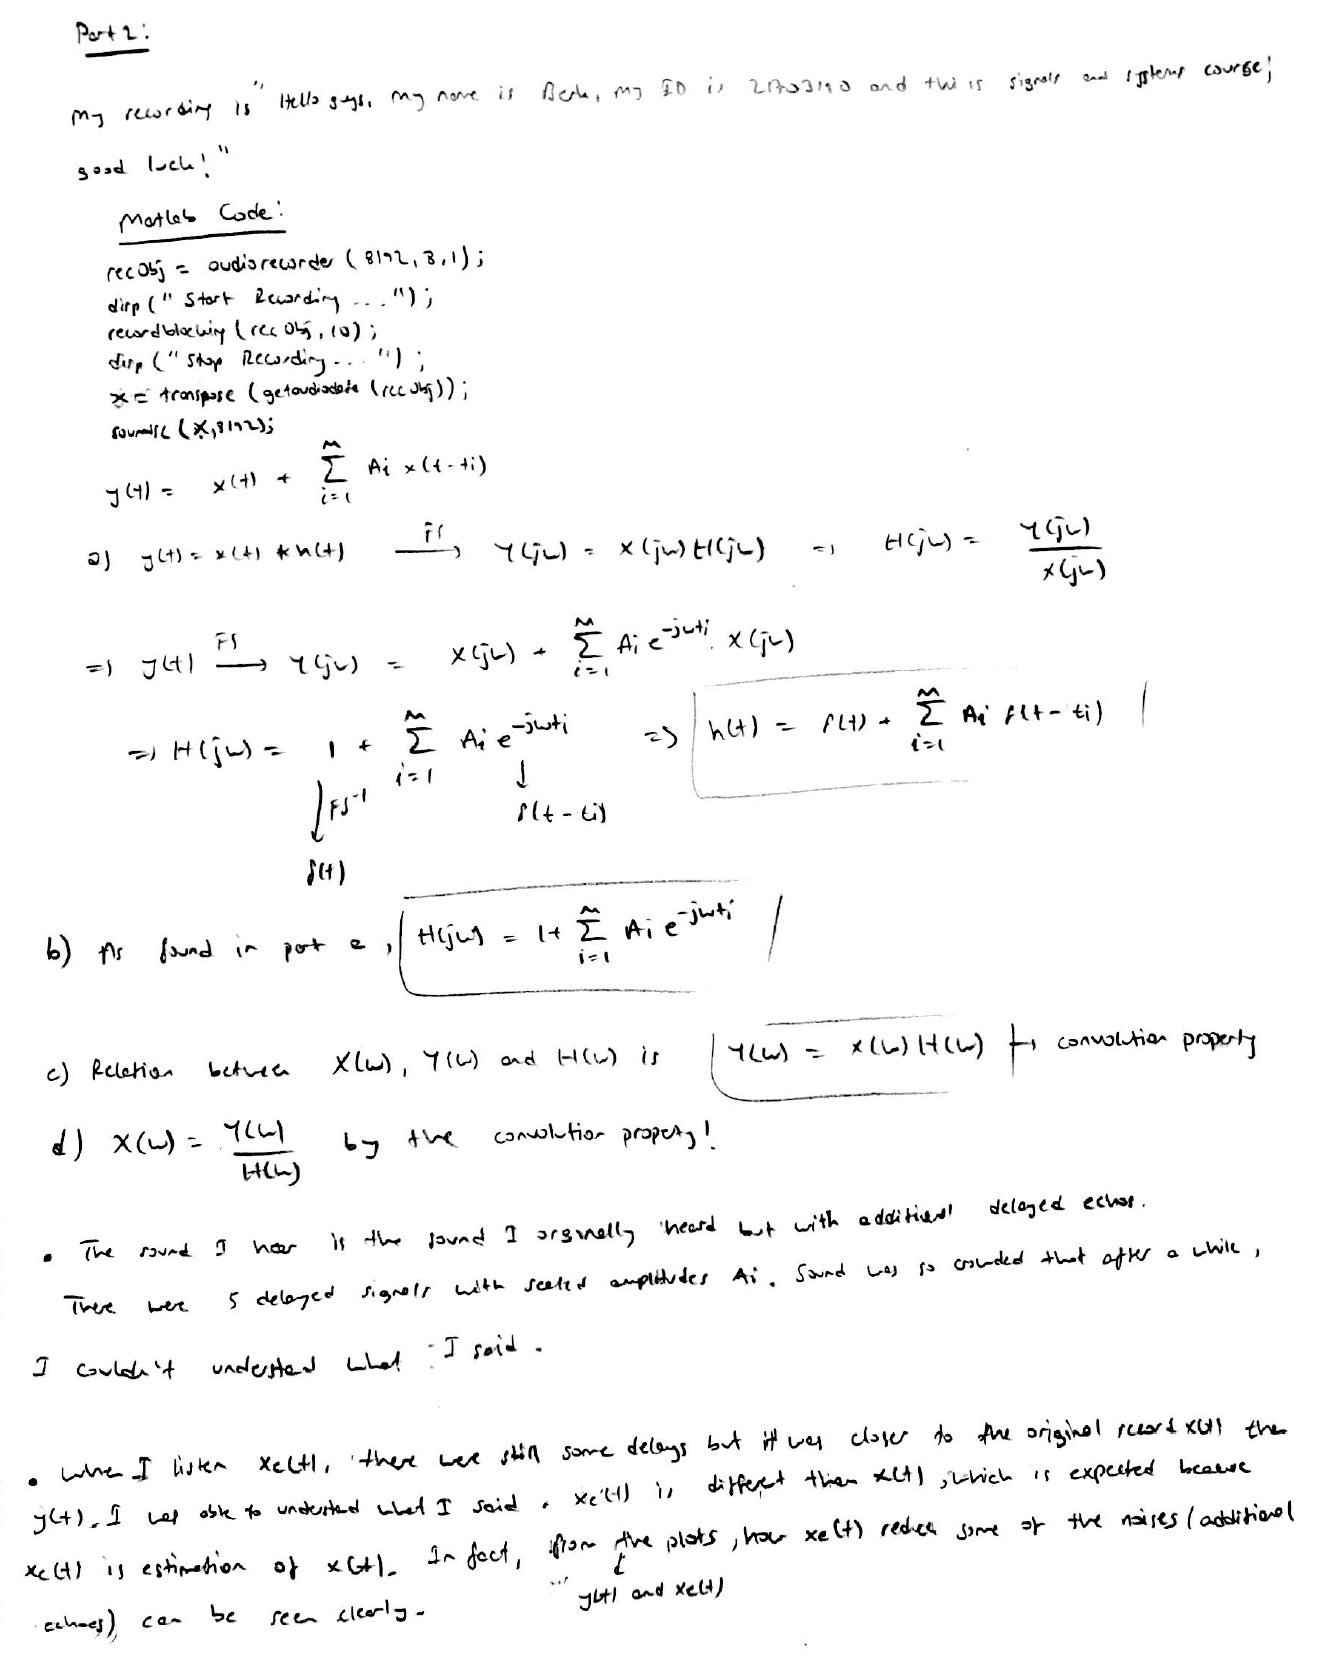 Part 2:
My recording is "Hello guys, my name is Berk, my ID is 21703190 and this is signals and systems course;
good luck!"
Matlab Code:
recObj = audiorecorder (8192,8,1);
disp ("Start Recording ...");
recordblocking (recObj, 10);
disp ("Stop Recording ...");
x = transpose (getaudiodata (recObj));
soundsc (x,8192);
y(t) = x(t) + Σ_{i=1}^{M} Ai x(t-ti)
a) y(t) = x(t) * h(t) —FS→ Y(jw) = X(jw) H(jw) => H(jw) = Y(jw) / X(jw)
=> y(t) —FS→ Y(jw) = X(jw) + Σ_{i=1}^{M} Ai e^{-jwti} . X(jw)
=> H(jw) = 1 + Σ_{i=1}^{M} Ai e^{-jwti} => h(t) = δ(t) + Σ_{i=1}^{M} Ai δ(t-ti)
↓ FS^-1 ↓ δ(t-ti)
δ(t)
b) As found in part a, H(jw) = 1 + Σ_{i=1}^{M} Ai e^{-jwti}
c) Relation between X(w), Y(w) and H(w) is Y(w) = X(w) H(w) → convolution property
d) X(w) = Y(w) / H(w) by the convolution property!
• The sound I hear is the sound I orginally heard but with additional delayed echos.
There were 5 delayed signals with scaled amplitudes Ai. Sound was so crowded that after a while,
I couldn't understand what I said.
• When I listen xe(t), there were still some delays but it was closer to the original record x(t) then
y(t). I was able to understand what I said. xe(t) is different than x(t), which is expected because
xe(t) is estimation of x(t). In fact, from the plots, how xe(t) reduces some of the noises (additional
↓ y(t) and xe(t)
echoes) can be seen clearly.